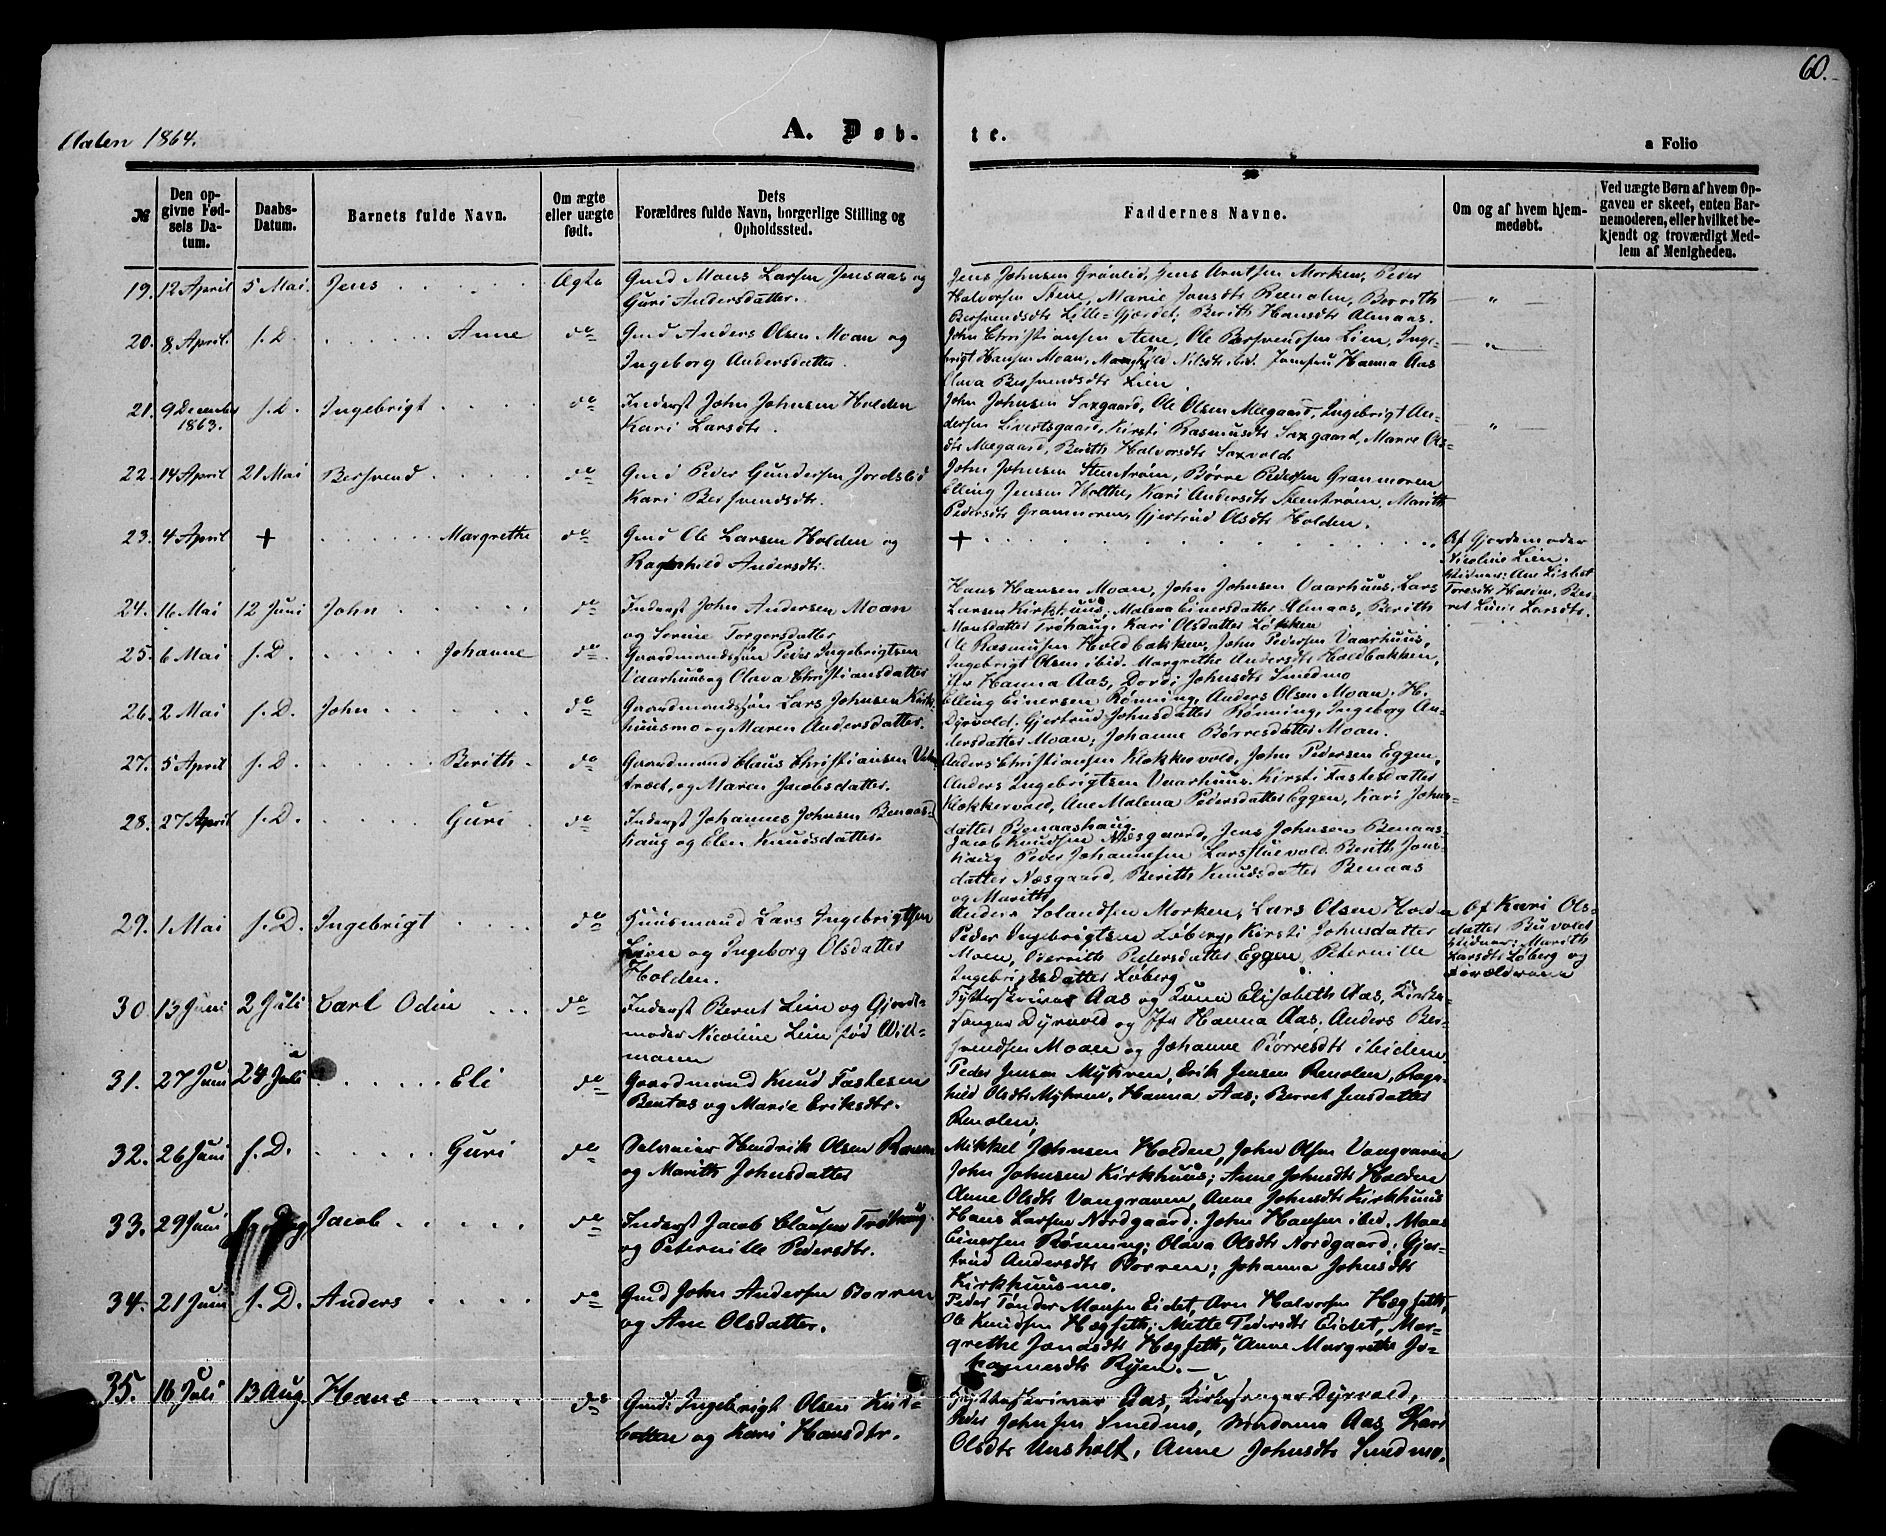 60.
Aalen 1864.
A. Døb-
te.
a Folio
№
Den op-
givne Fød-
sels Da-
tum.
Daabs-
Datum.
Barnets fulde Navn.
Om ægte
eller uægte
født.
Dets
Forældres fulde Navn, borgerlige Stilling og
Opholdssted.
Faddernes Navne.
Om og af hvem hjem-
medøbt.
Ved uægte Børn af hvem Op-
gaven er skeet, enten Bar-
nemoderen, eller hvilket be-
kjendt og troværdigt Med-
lem af Menigheden.
19. 12 April 5 Mai. Jens Ægte Gmd Mons Larsen Jensaas og
Guri Andersdatter.
Jens Johnsen Grønlid, Jens Arntsen Morken, Peder
Halvorsen Stene, Marie Jonsdtr Renolen, Berrith
Bersvendsdtr Lille-Gjærdet, Berith Hansdtr Almaas.
20. 8 April. s. D. Anne do Gmd Anders Olsen Moan og
Ingeborg Andersdatter.
John Christiansen Stene, Ole Bersvendsen Lien, Inge-
brigt Hansen Moan, Nilsdtr ibid. Jomfru Hanna Aas
Olava Bersvendsdtr Lien.
21. 9 December
1863. s. D. Ingebrigt do Inderst John Johnsen Holden
Kari Larsdtr.
John Johnsen Saxgaard, Ole Olsen Møegaard, Ingebrigt An-
dersen Sivertsgaard, Kirsti Rasmusdtr Saxgaard, Maren Ols-
dtr Møegaard, Berith Halvorsdtr Saxvold.
22. 14 April 21 Mai Bersvend do Gmd Peder Gundersen Jordslid
Kari Bersvendsdtr.
John Johnsen Stenstrøm, Børre Pedersen Granmoren
Elling Jensen Holthe, Kari Andersdtr Stenstrøm, Marith
Pedersdtr Granmoren, Gjertrud Olsdtr Holden.
23. 4 April + Margrethe do Gmd Ole Larsen Holden og
Ragnhild Andersdtr.
+
Af Gjordemoder
Nicoline Lien.
Vidner: Ane Lisbet
Toresdtr Holden, Ber-
ret Larsdtr.
24. 16 Mai 12 Juni John do Inderst John Andersen Moan
og Serine Torgersdatter
Hans Hansen Moan, John Johnsen Vaarhuus, Lars
Larsen Kirkhuus, Malena Einersdatter Almaas, Berith
Monsdatter Trøhaug, Kari Olsdatter Løkken
25. 6 Mai s. D. Johanne do Gaardmandssøn Peder Ingebrigtsen
Vaarhuus og Olava Christiansdatter
Ole Rasmusen Holdbakken, John Pedersen Vaarhuus,
Ingebrigt Olsen ibid. Margrethe Andersdtr Holdbakken,
Jfr Hanna Aas, Dordi Johnsdtr Smedmo
26. 2 Mai s. D. John do Gaardmandssøn Lars Johnsen Kirk-
huusmo og Maren Andersdatter.
Elling Einersen Rønning, Anders Olsen Moan. H.
Dyrvold, Gjertrud Johnsdatter Rønning, Ingeborg An-
dersdatter Moan, Johanne Børresdatter Moan.
27. 5 April s. D. Berith do Gaardmand Claus Christiansen
og Maren Jacobsdatter.
Anders Christiansen Klokkervold, John Pedersen Eggen,
Anders Ingebrigtsen Vaarhuus, Kirsti Fastesdatter
Klokkervold, Ane Malena Pedersdatter Eggen, Kari Johns-
datter Benaashaug.
28. 27 April s. D. Guri do Inderst Johannes Johnsen Benaas-
haug og Elen Knudsdatter.
Jacob Knudsen Næsgaard, Jens Johnsen Benaas-
haug Peder Johannesen Larsstuevold. Berith Jons-
datter Næsgaard, Berith Knudsdatter Benaas
og Marith
29. 1 Mai s. D. Ingebrigt do Huusmand Lars Ingebrigtsen
Lien og Ingeborg Olsdatter
Holden.
Anders Morken, Lars Olsen Holden
Peder Ingebrigtsen Løberg, Kirsti Johnsdatter
Moen, Pedersdatter Eggen, Peternille
Ingebrigtsdatter Løberg
Af Kari Ols-
datter Buvold
Vidner: Marith
Larsdtr Løberg og
Forældrene
30 13 Juni 2 Juli Carl Odin do Inderst Bernt Lien og Gjorde-
moder Nicoline Lien fød Will-
mann
Hytteskriver Aas og Kone Elisabeth Aas, Kirke-
sanger Dyrvold og Jfr Hanna Aas, Anders Ber-
svendsen Moan og Johanne Børresdtr ibidem.
31. 27 Juni 24 Juli Eli do Gaardmand Knud Fastesen
Bentas og Marie Eriksdtr.
Peder Jensen Myhren, Erik Jensen Renolen, Ragn-
hild Olsdtr Myhren, Hanna Aas, Berret Jensdatter
Renolen,
32. 26 Juni s. D. Guri do Selveier Hendrik Olsen Ramm
og Marith Johnsdatter
Mikkel Johnsen Holden, John Olsen Vangraven
John Johnsen Kirkhuus; Anne Johnsdtr Holden
Anne Olsdtr Vangraven, Anne Johnsdtr Kirkhuus
33. 29 Juni Jacob do Inderst Jacob Clausen Trøhaug
og Peternille Pedersdtr.
Hans Larsen Nordgaard, John Hansen ibid, Mons
Einersen Rønning; Olava Olsdtr Nordgaard; Gjer-
trud Andersdtr Borren; Johanna Johnsdtr
Kirkhuusmo.
34. 21 Juni s. D. Anders do Gmd John Andersen Borren
og Ane Olsdatter.
Peder Tønder Monsen Eidet, Arn Halvorsen Hægseth,
Ole Knudsen Hægseth; Mette Pedersdtr Eidet, Mar-
grethe Jensdtr Hægseth, Anne Margrethe Jo-
hannesdtr Ryen.
35. 16 Juli 13 Aug. Hans do Gmd: Ingebrigt Olsen Kur-
batten og Kari Hansdtr.
Hytteskriver Aas, Kirkesanger Dyrvold,
Peder Johnsen Smedmo, Madame Aas, Kari
Olsdtr Unsholt, Anne Johnsdtr Smedmo.